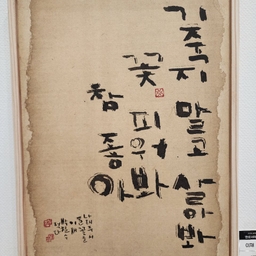 기죽지 말고 살아봐
꽃 피워봐
참 좋아